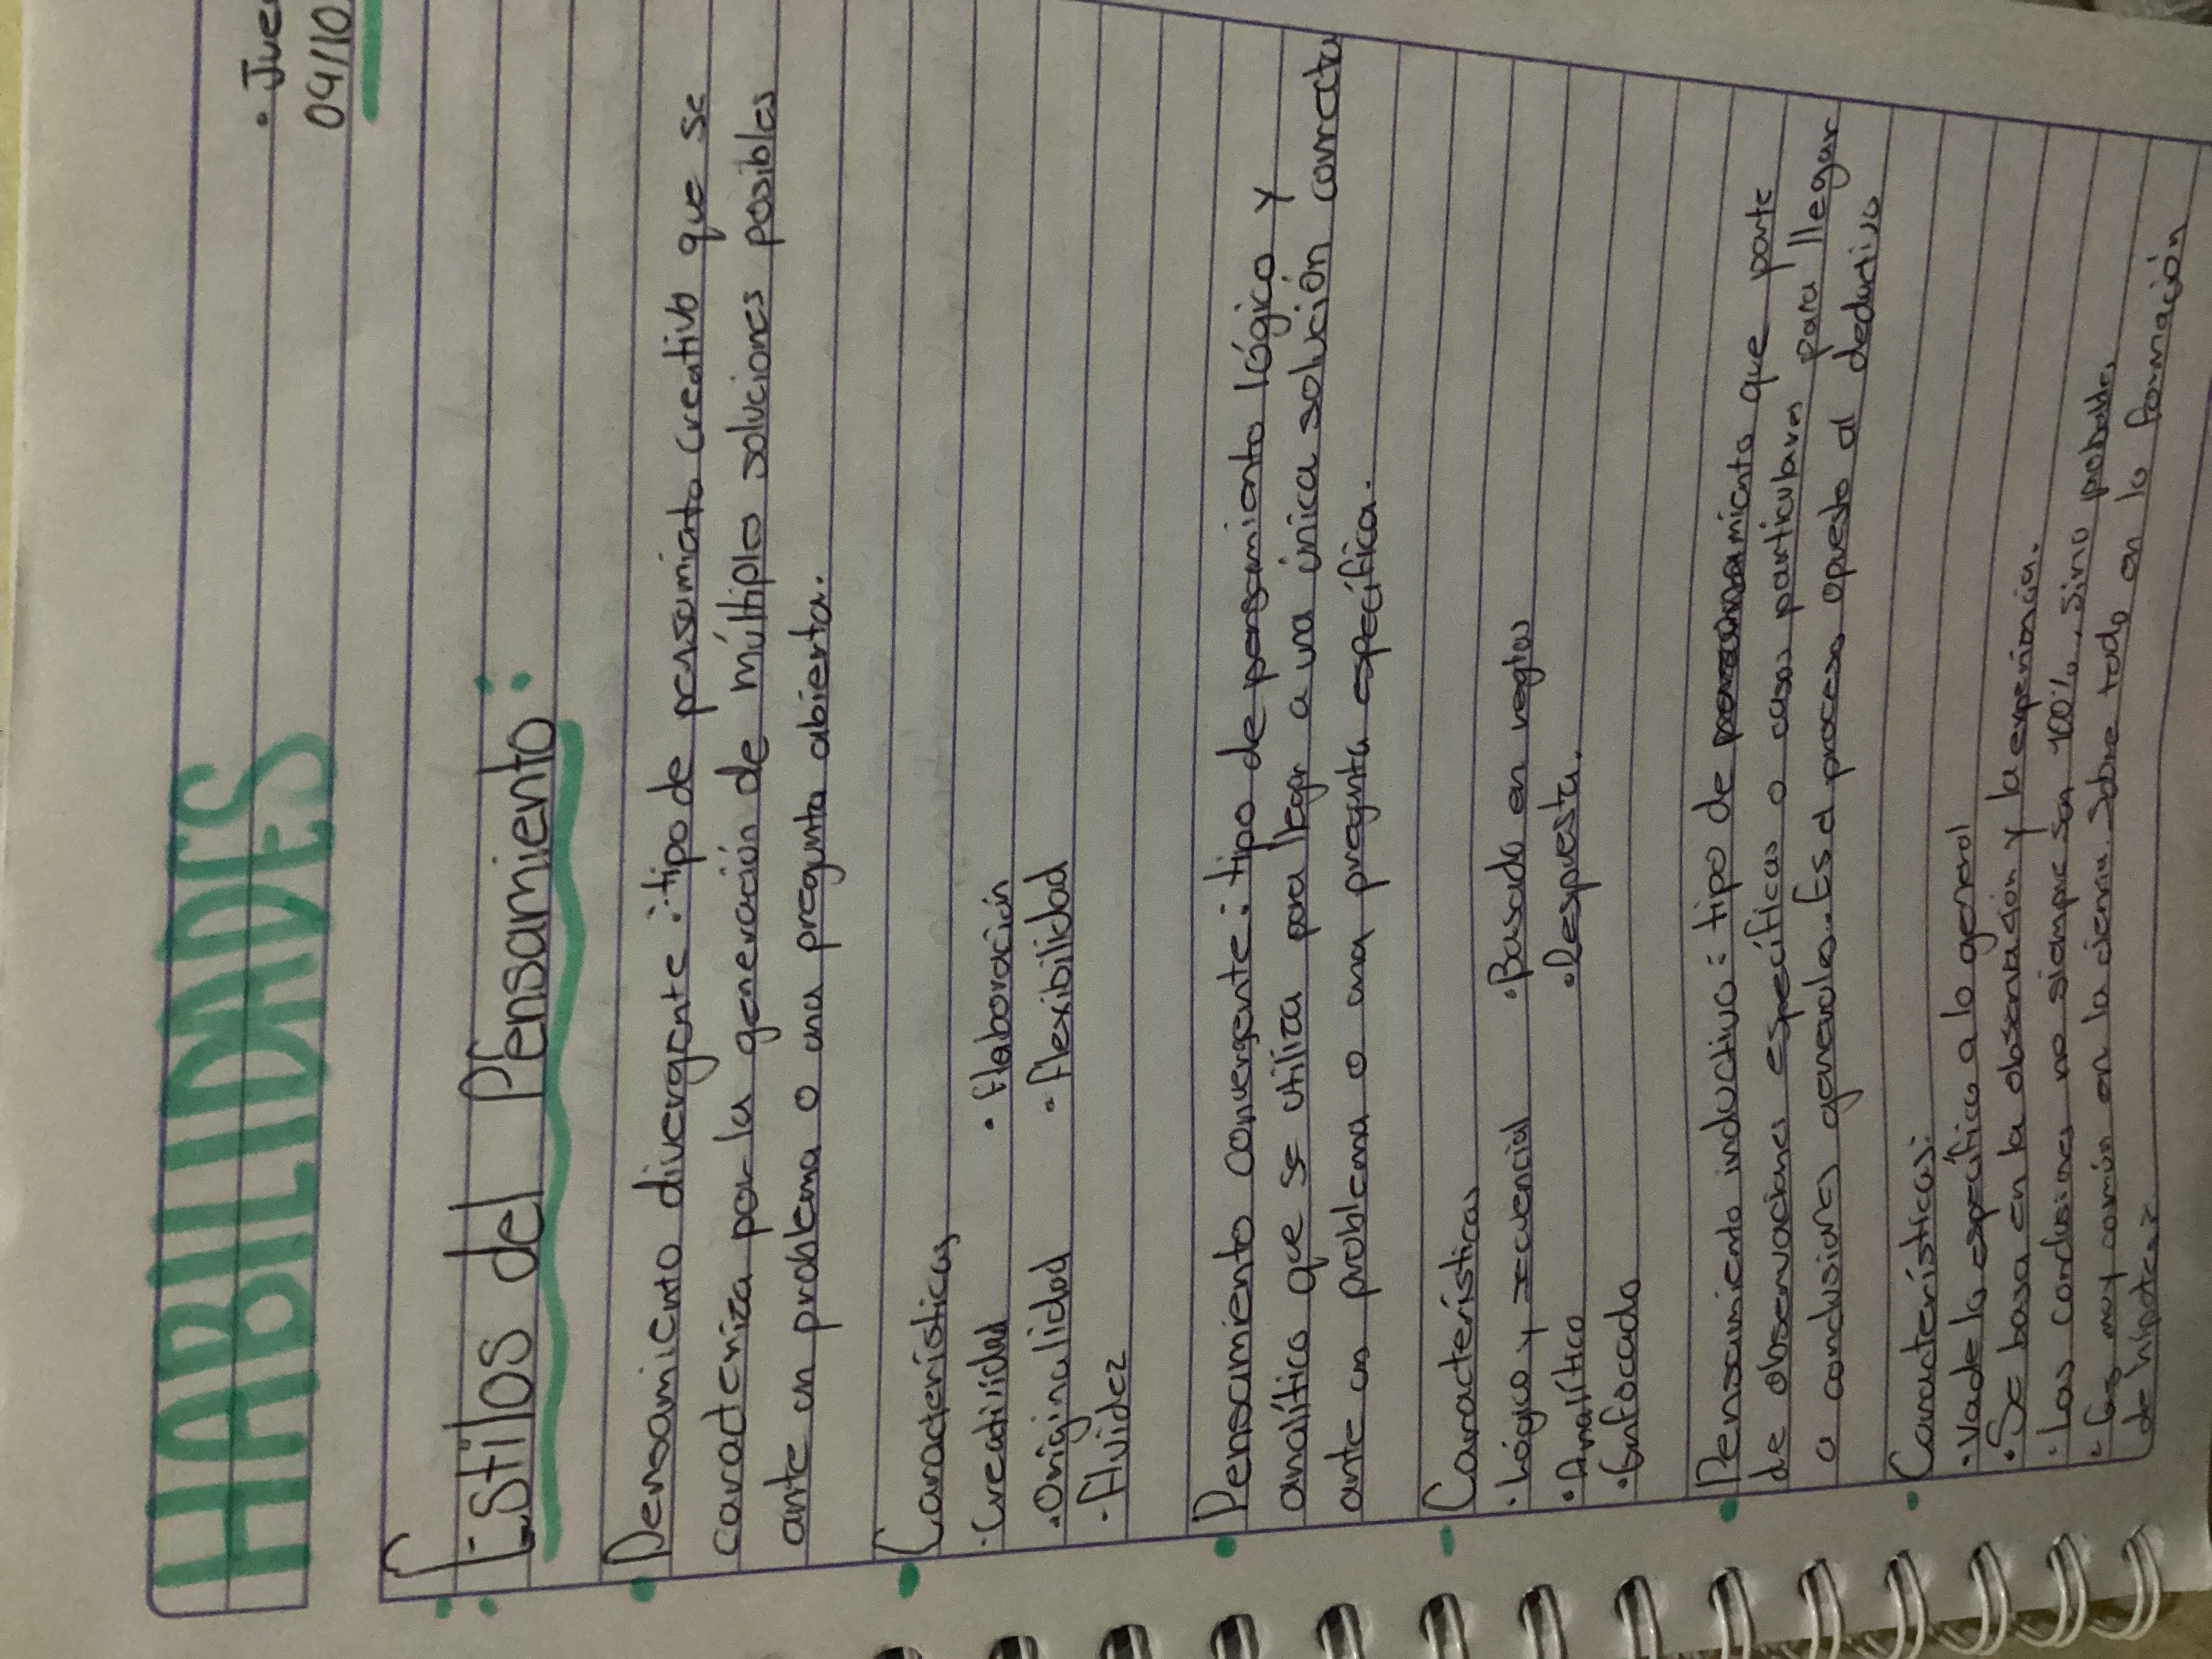 HABILIDADES
• Jue
09/10
Estilos del Pensamiento:
Pensamiento divergente: tipo de pensamiento creativo que se
caracteriza por la generación de múltiples soluciones posibles
ante un problema o una pregunta abierta.
Características
• Creatividad • Elaboración
• Originalidad • Flexibilidad
• Fluidez
Pensamiento convergente: tipo de pensamiento lógico y
analítico que se utiliza para llegar a una única solución correcta
ante un problema o una pregunta específica.
Características
• Lógico y secuencial • Basado en reglas
• Analítico • Respuesta.
• Enfocado
Pensamiento inductivo: tipo de pensamiento que parte
de observaciones específicas o casos particulares para llegar
a conclusiones generales. Es el proceso opuesto al deductivo
Características:
• Va de lo específico a lo general
• Se basa en la observación y la experiencia.
• Las conclusiones no siempre son 100%, sino probables
• Es muy común en la ciencia. Sobre todo en la formación
de hipótesis